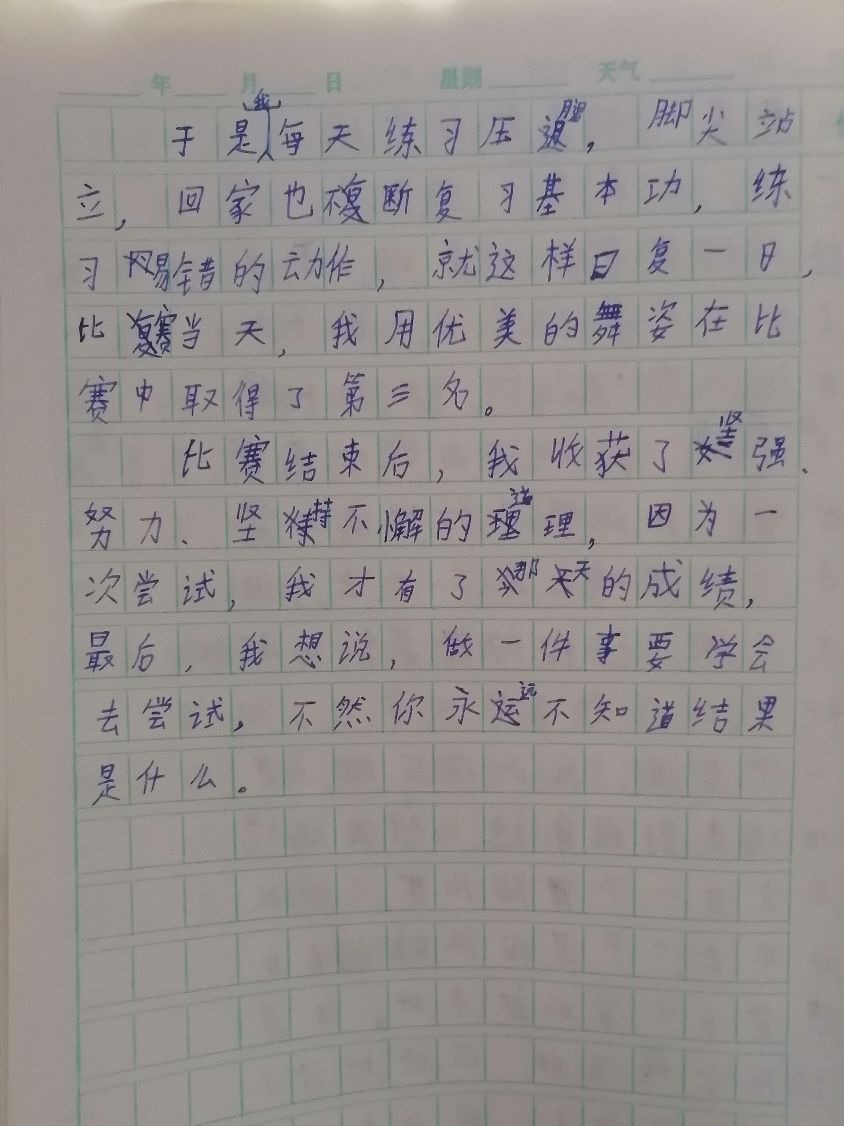 年 月 日 星期 天气
于是我每天练习压腿，脚尖站
立，回家也不断复习基本功，练
习易错的动作，就这样日复一日，
比赛当天，我用优美的舞姿在比
赛中取得了第三名。
比赛结束后，我收获了坚强、
努力、坚持不懈的道理，因为一
次尝试，我才有了那天的成绩，
最后，我想说，做一件事要学会
去尝试，不然你永远不知道结果
是什么。